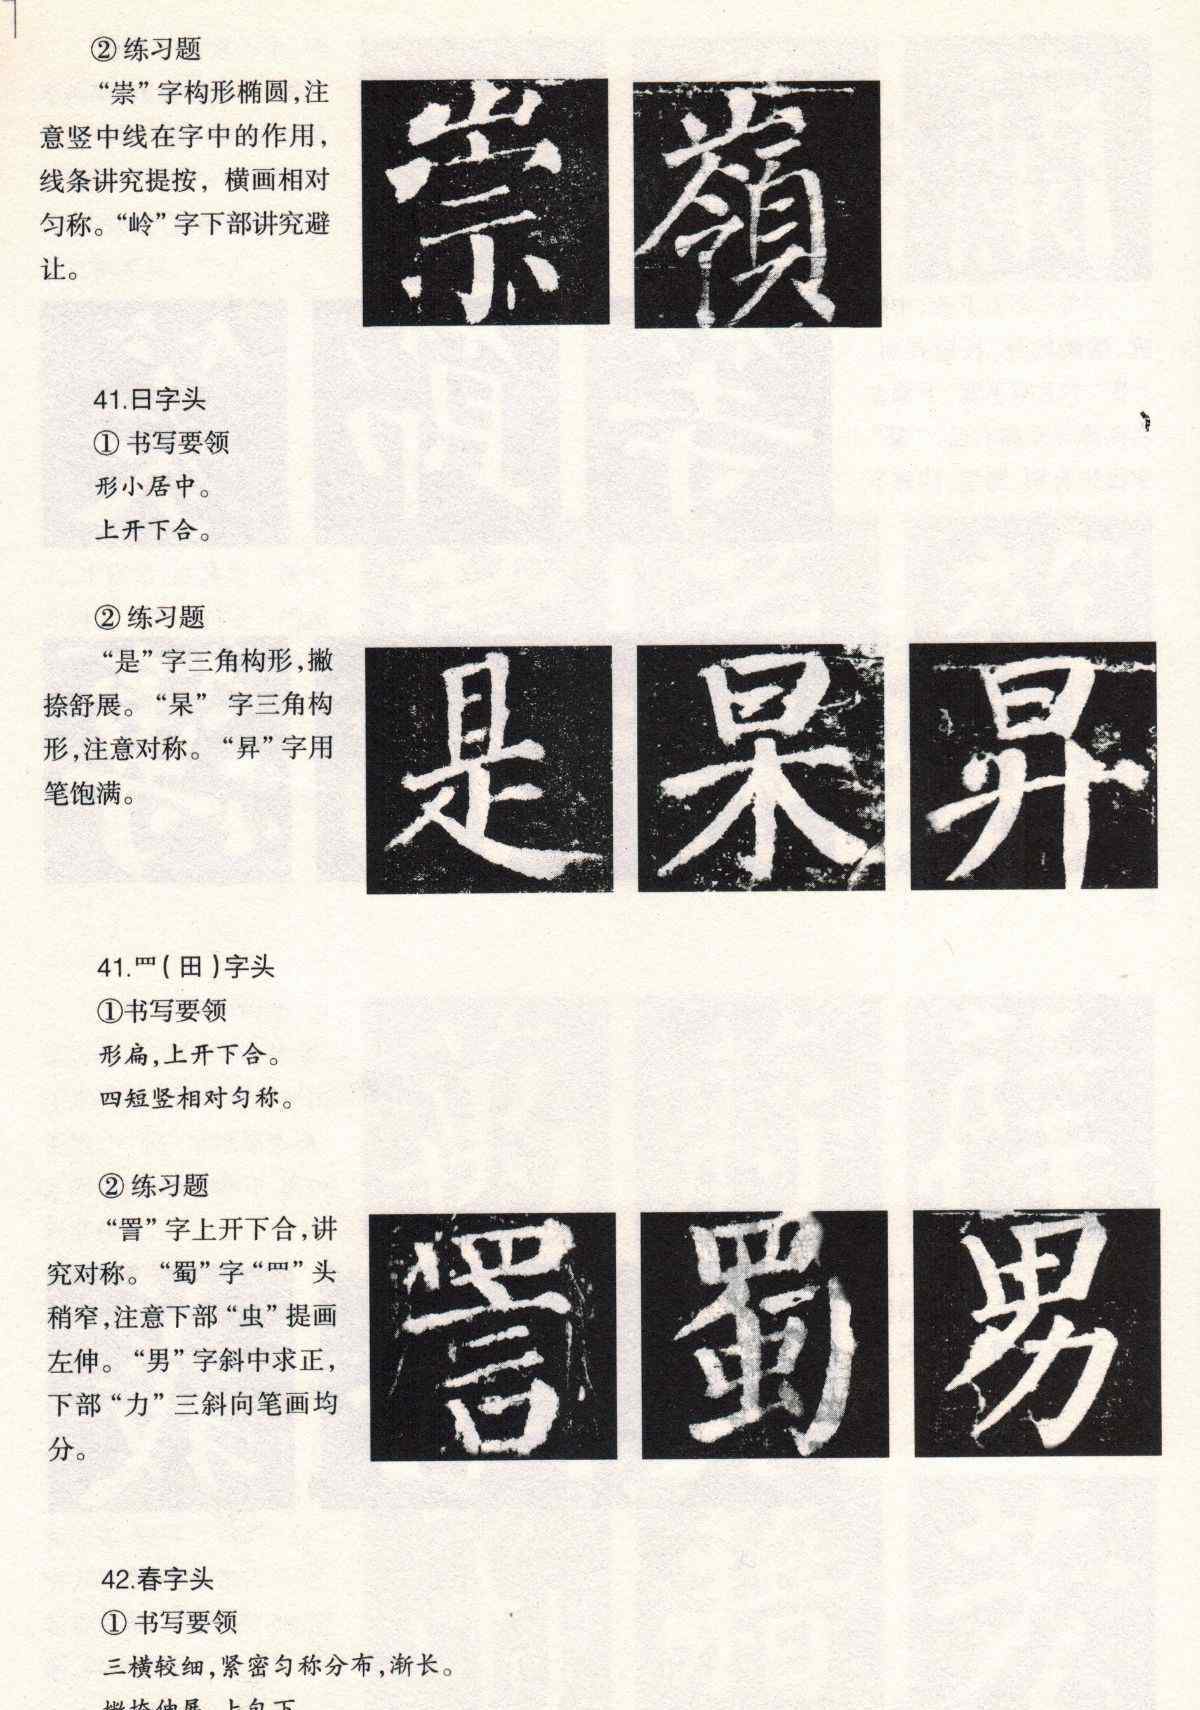 ② 练习题
“崇”字构形椭圆,注
意竖中线在字中的作用,
线条讲究提按, 横画相对
匀称。“岭”字下部讲究避
让。
崇 嶺
41.日字头
① 书写要领
形小居中。
上开下合。
② 练习题
“是”字三角构形,撇
捺舒展。“杲” 字三角构
形,注意对称。“昇”字用
笔饱满。
是 杲 昇
41.罒(田)字头
①书写要领
形扁,上开下合。
四短竖相对匀称。
② 练习题
“詈”字上开下合,讲
究对称。“蜀”字“罒”头
稍窄,注意下部“虫”提画
左伸。“男”字斜中求正,
下部“力”三斜向笔画均
分。
詈 蜀 男
42.春字头
① 书写要领
三横较细,紧密匀称分布,渐长。
撇捺伸展,上包下